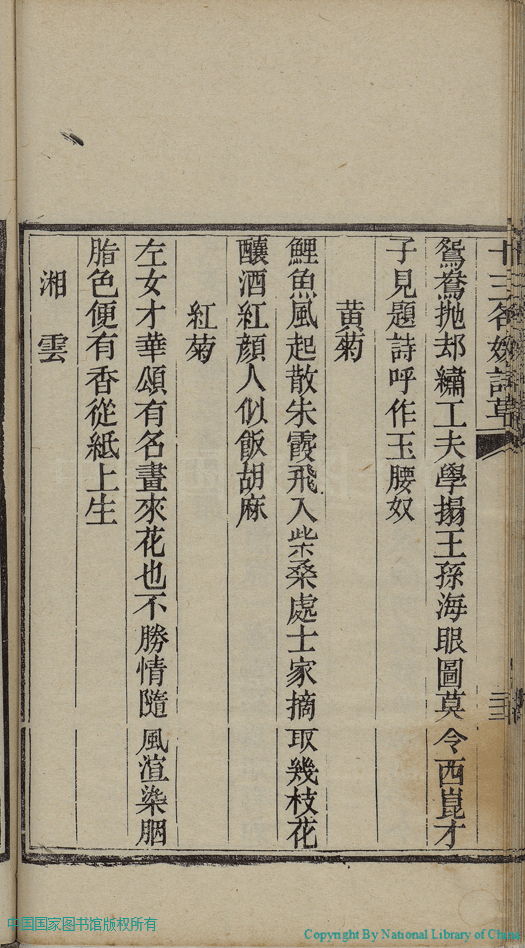 十三名媛詩草
鴛鴦抛却繡工夫學搨王孫海眼圖莫令西崑才
子見題詩呼作玉腰奴
黄菊
鯉魚風起散朱霞飛入柴桑處士家摘取幾枝花
釀酒紅顔人似飯胡麻
紅菊
左女才華頌有名畫來花也不勝情隨風渲染胭
脂色便有香從紙上生
湘雲
中国国家图书馆版权所有
Copyright By National Library of China